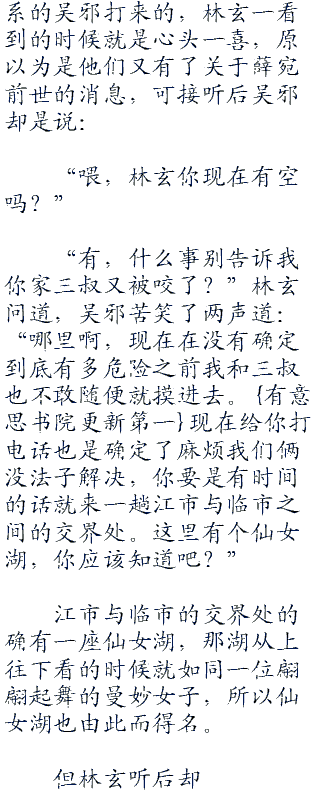 系的吴邪打来的，林玄一看
到的时候就是心头一喜，原
以为是他们又有了关于薛宛
前世的消息，可接听后吴邪
却是说：
“喂，林玄你现在有空
吗？”
“有，什么事别告诉我
你家三叔又被咬了？”林玄
问道，吴邪苦笑了两声道：
“哪里啊，现在在没有确定
到底有多危险之前我和三叔
也不敢随便就摸进去。{有意
思书院更新第一}现在给你打
电话也是确定了麻烦我们俩
没法子解决，你要是有时间
的话就来一趟江市与临市之
间的交界处。这里有个仙女
湖，你应该知道吧？”
江市与临市的交界处的
确有一座仙女湖，那湖从上
往下看的时候就如同一位翩
翩起舞的曼妙女子，所以仙
女湖也由此而得名。
但林玄听后却